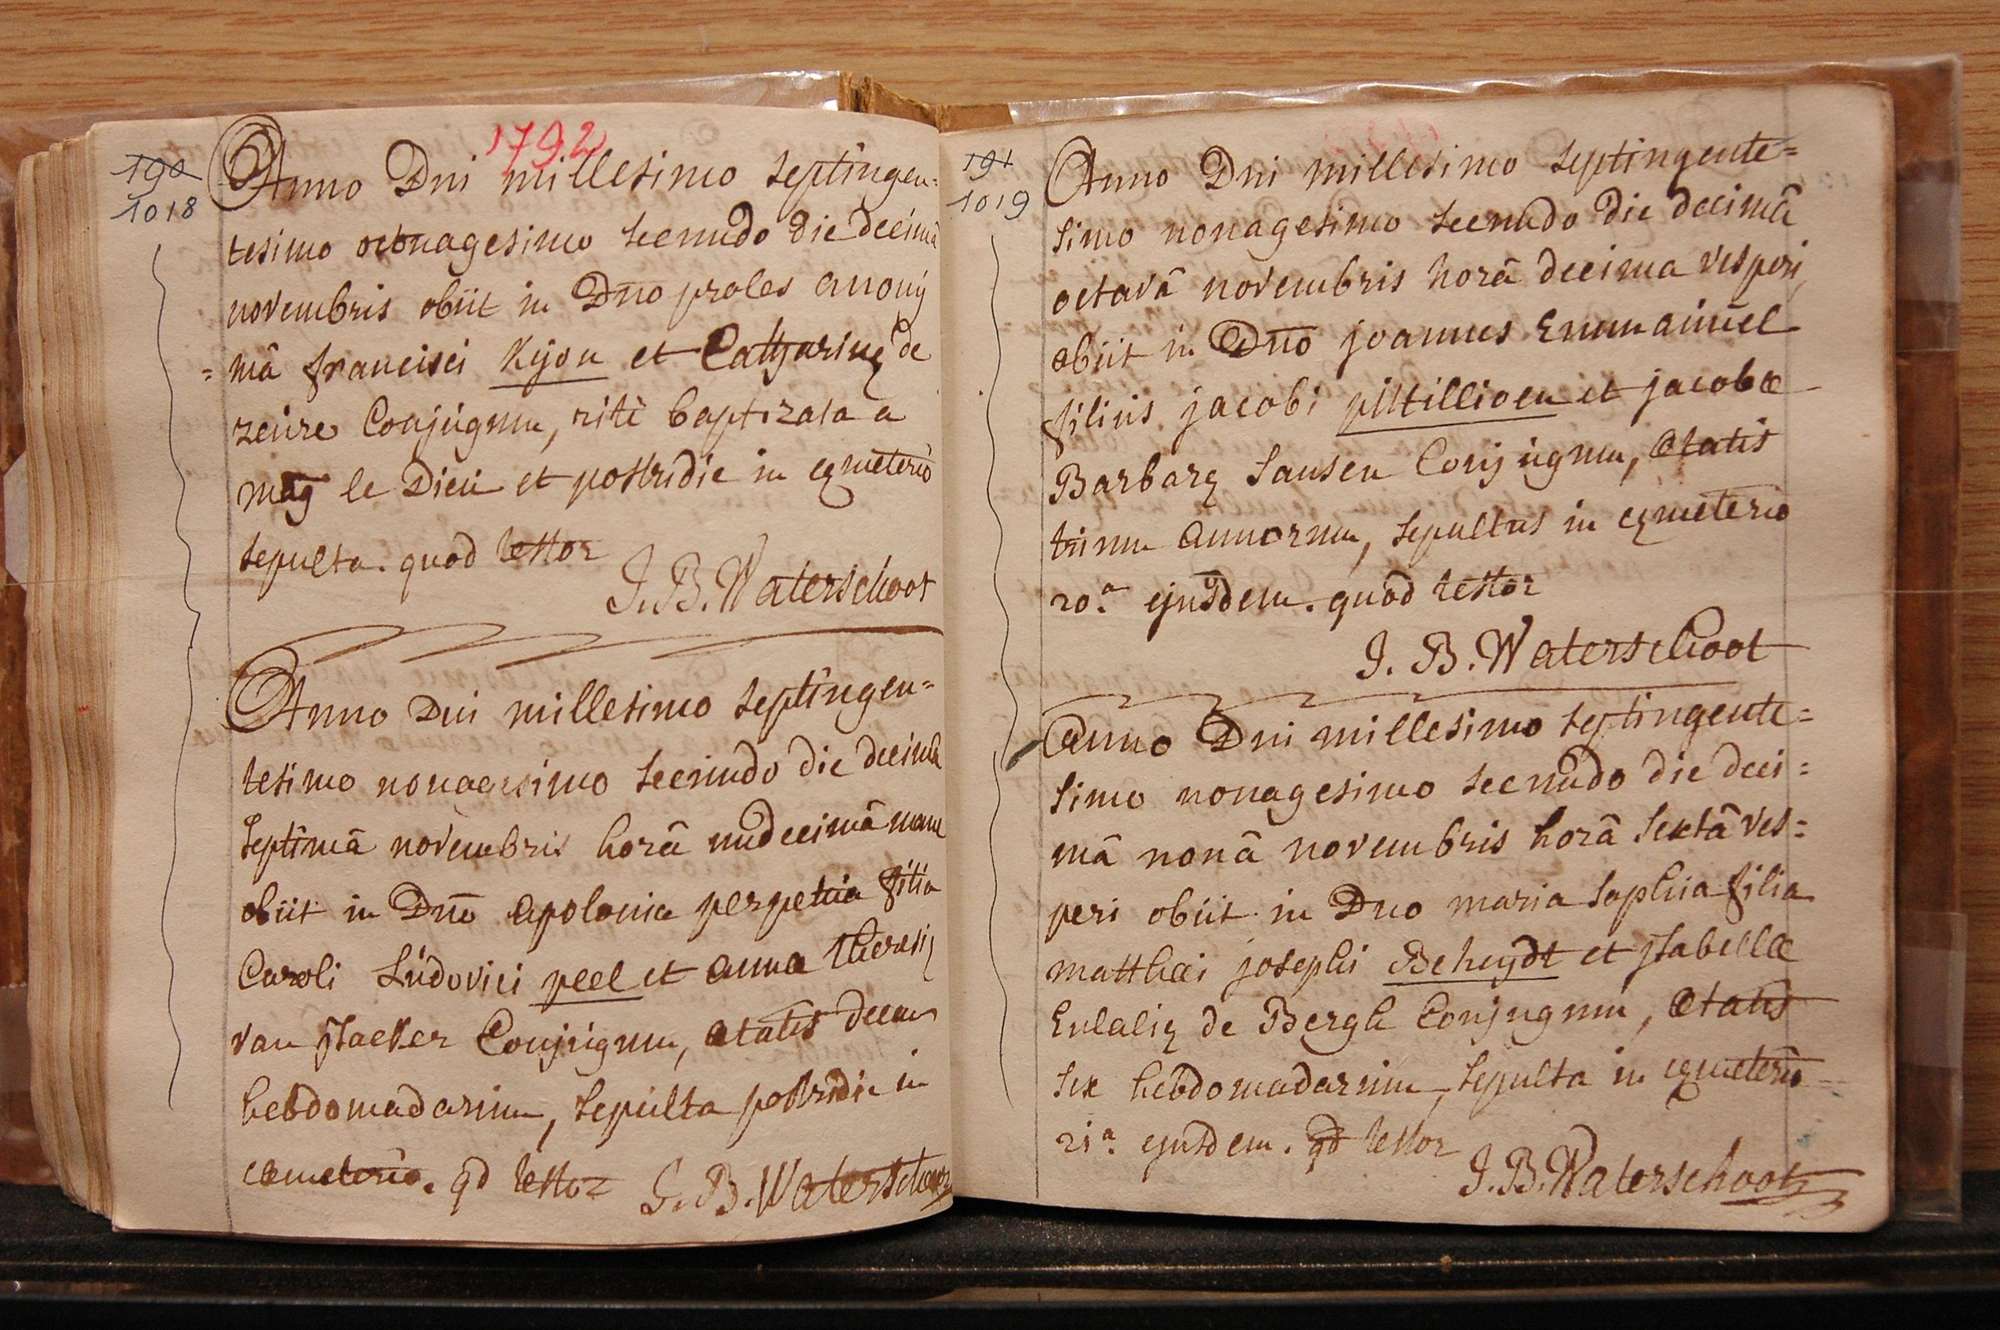 1792
190
1018
Anno Dni millesimo septingen=
tesimo octonagesimo secundo die decimâ
novembris obiit in Dno proles anony
= mâ francisci Kijon et Catharinę de
zeure Conjugum, ritè baptizata a
le Dieu et postridie in cęmeterio
sepulta. quod testor
J. B. Waterschoot
Anno Dni millesimo septingen=
tesimo nonagesimo secundo die decimâ
septimâ novembris horâ undecimâ mane
obiit in Dno apolonia perpetua filia
Caroli Ludovici peel et anna theresię
van Stacker Conjugum, ætatis decem
hebdomadarum, sepulta postridie in
cœmeterio. qd testor J. B. Waterschoot
191
1019
Anno Dni millesimo septingente=
simo nonagesimo secundo die decimâ
octavâ novembris horâ decima vesperi
obiit in Dno joannes Emmanuel
filius jacobi pittillioen et jacobæ
Barbarę Sansen Conjugum, ætatis
trium annorum, sepultus in cęmeterio
20.a ejusdem. quod testor
J. B. Waterschoot
Anno Dni millesimo septingente=
simo nonagesimo secundo die deci=
mâ nonâ novembris horâ sextâ ves=
peri obiit in Dno maria sophia filia
matthæi josephi Beheydt et ysabellæ
Eulalię de Bergh Conjugum, ætatis
sex hebdomadarum, sepulta in cęmeterio
21a. ejusdem. qd testor
J. B. Waterschoot